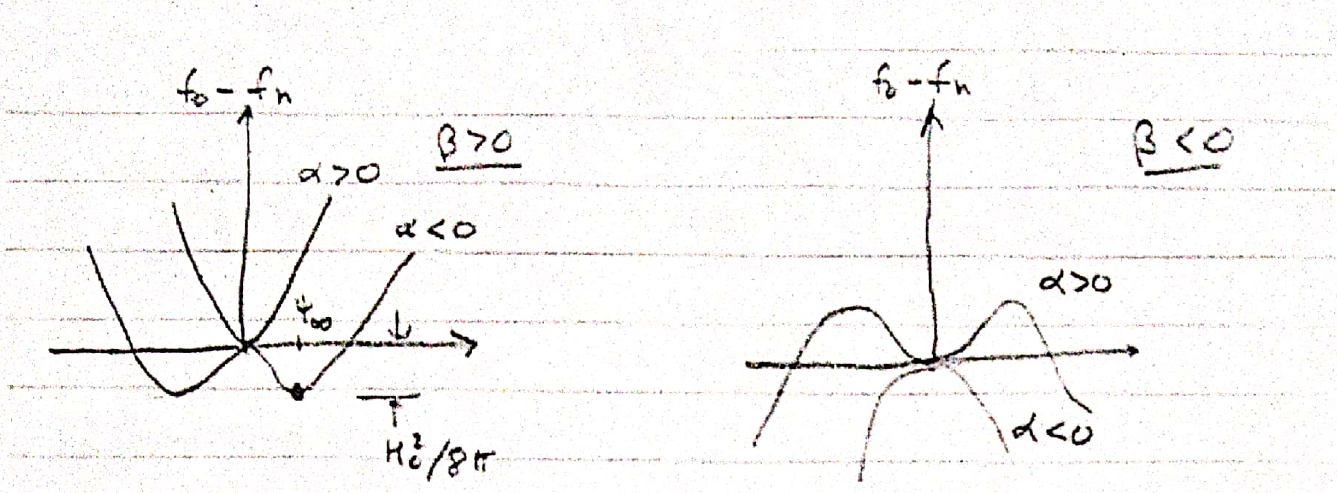 f₀ - fₙ
β>0
α>0
α<0
ψ∞
H_c²/8π
f₀ - fₙ
β<0
α>0
α<0